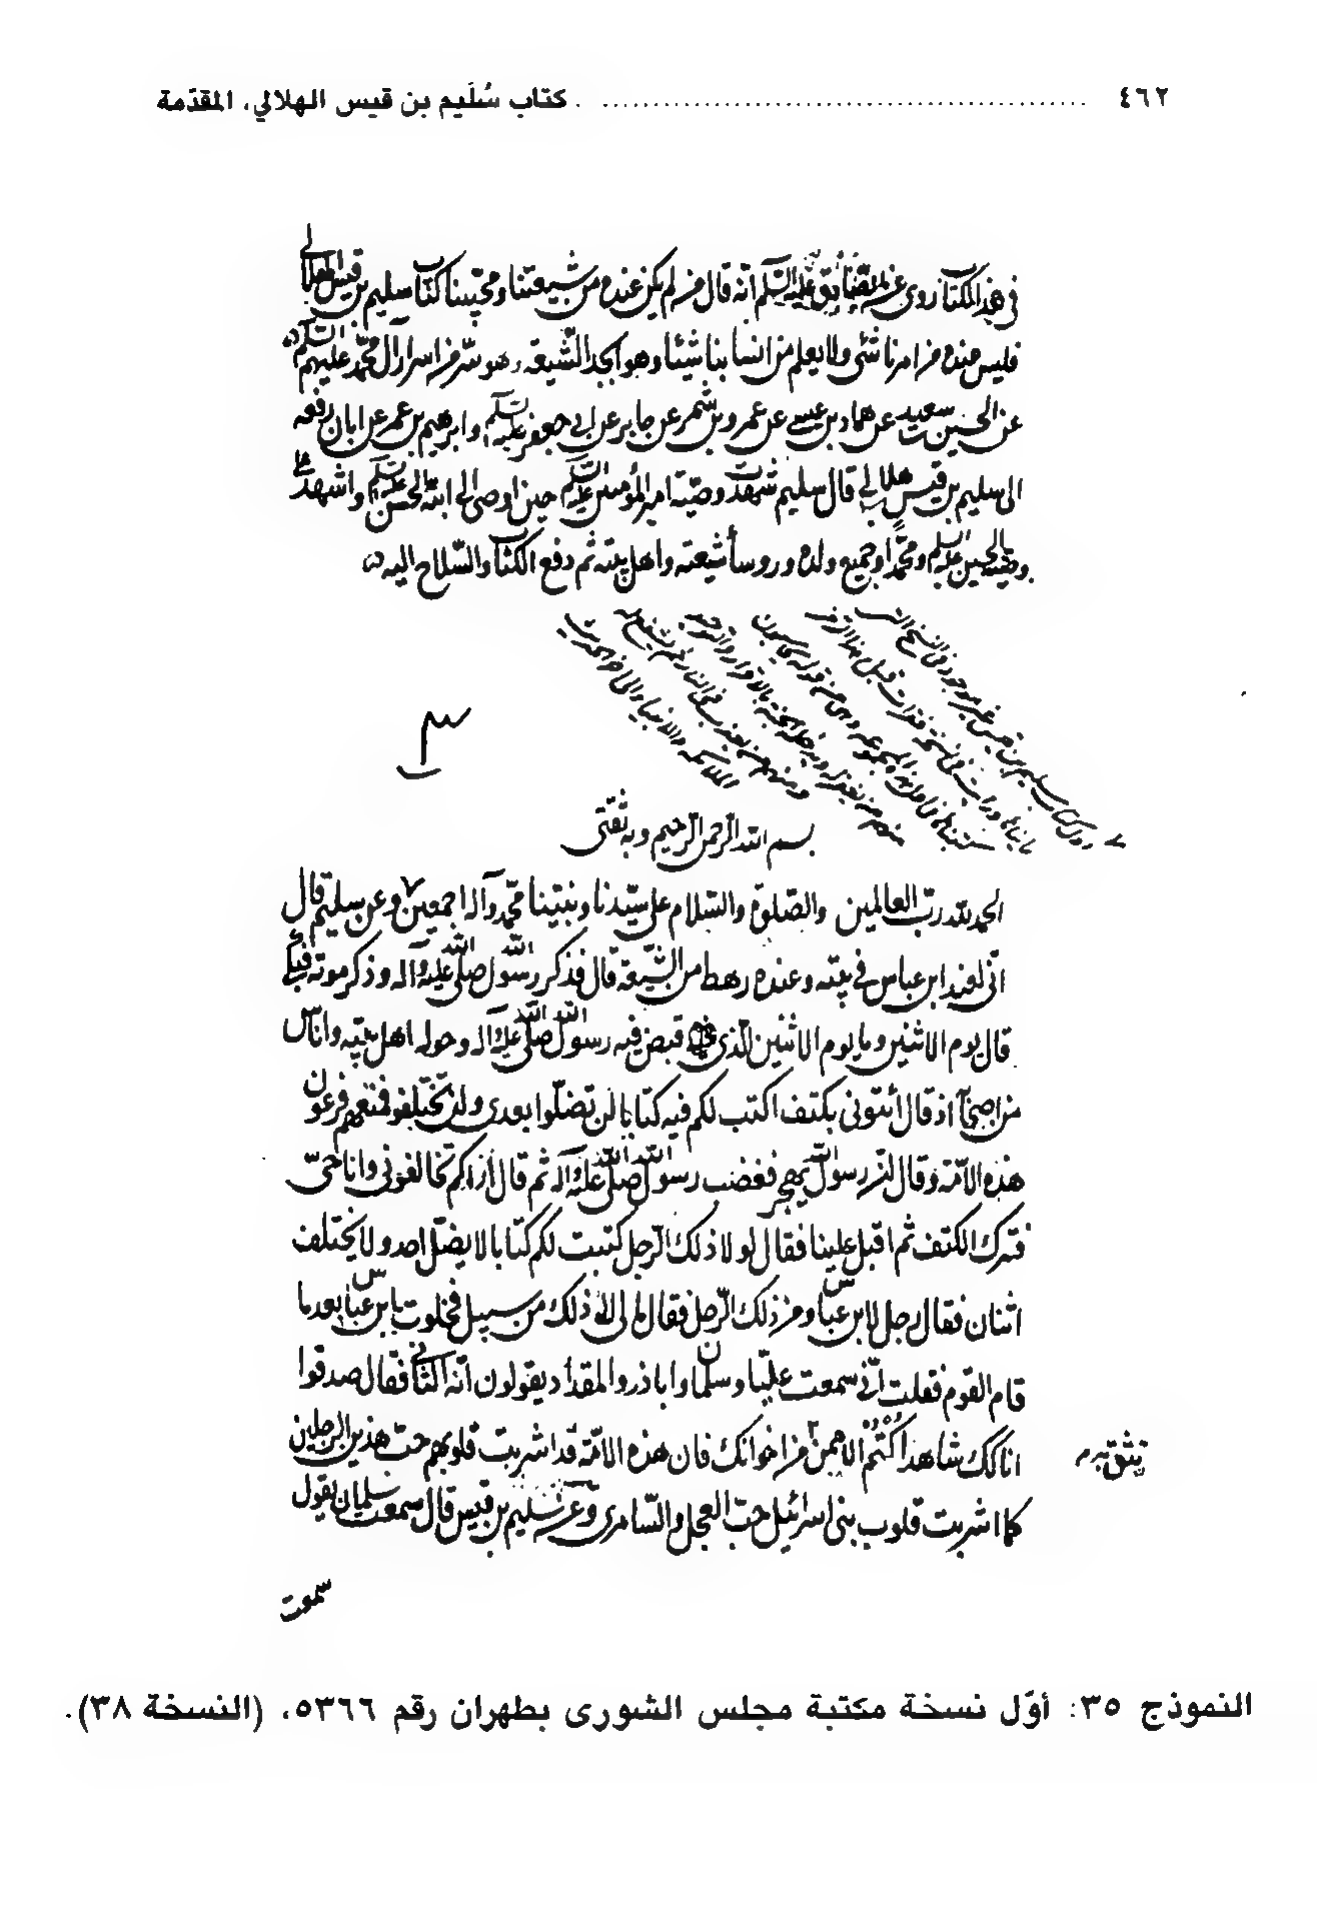 ٤٦٢ ........................................ كتاب سُلَيم بن قيس الهلالي، المقدّمة
في هذا الكتاب روى عن الصادق عليه السلم انه قال من لم يكن عنده من شيعتنا ومحبينا كتاب سليم بن قيس الهلالي
فليس عنده من امرنا شئ ولا يعلم من اسبابنا شيئا وهو ابجد الشّيعه وهو سرّ من اسرار آل محمّد عليهم السلم
عن الحسين بن سعيد عن حماد بن عيسى عن عمرو بن شمر عن جابر عن ابي جعفر عليه السلم وابرهيم بن عمر عن ابان رفعه
الى سليم بن قيس هلالي قال سليم شهدت وصيّة امير المؤمنين عليه السلم حين اوصى الى ابنه الحسن عليه السلم واشهد على
وصيته الحسين عليه السلم ومحمّدا وجميع ولده وروسأ شيعته واهل بيته ثم دفع الكتاب والسّلاح اليه
بسم الله الرّحمن الرّحيم وبه ثقتى
الحمد لله ربّ العالمين والصّلوة والسّلام على سيّدنا ونبيّنا محمّد وآله اجمعين وعن سليم قال
انّى لعند ابن عباس في بيته وعنده رهط من الشّيعة قال فذكر رسول الله صلى الله عليه وآله وذكر موته فبكى
قال يوم الاثنين وما يوم الاثنين الّذى قبض فيه رسول الله صلى الله عليه وآله وحوله اهل بيته واناس
من اصحابه اذ قال أئتونى بكتف اكتب لكم فيه كتابا لن تضلّوا بعدى ولن تختلفوا فمنعهم فرعون
هذه الامّة وقال انّ رسول الله يهجر فغضب رسول الله صلى الله عليه وآله ثم قال أراكم تخالفونى وانا حىّ
فترك الكتف ثم اقبل علينا فقال لولا ذلك الرّجل كتبت لكم كتابا لا يضلّ احد ولا يختلف
اثنان فقال رجل لابن عبّاس ومن ذلك الرّجل فقال مالى الى ذلك من سبيل فخلوت بابن عبّاس بعد ما
قام القوم فقلت انّى سمعت عليّا وسلمان واباذر والمقداد يقولون انّه الثانى فقال صدقوا
انا لك شاهد اكتم الا ممن من اخوانك فان هذه الامّة قد اشربت قلوبهم حبّ هذين الرجلين
تثق به م
كما اشربت قلوب بنى اسرائيل حبّ العجل والسّامرى وعن سليم بن قيس قال سمعت سلمان يقول
سمعت
النموذج ٣٥: أوّل نسخة مكتبة مجلس الشورى بطهران رقم ٥٣٦٦، (النسخة ٣٨).